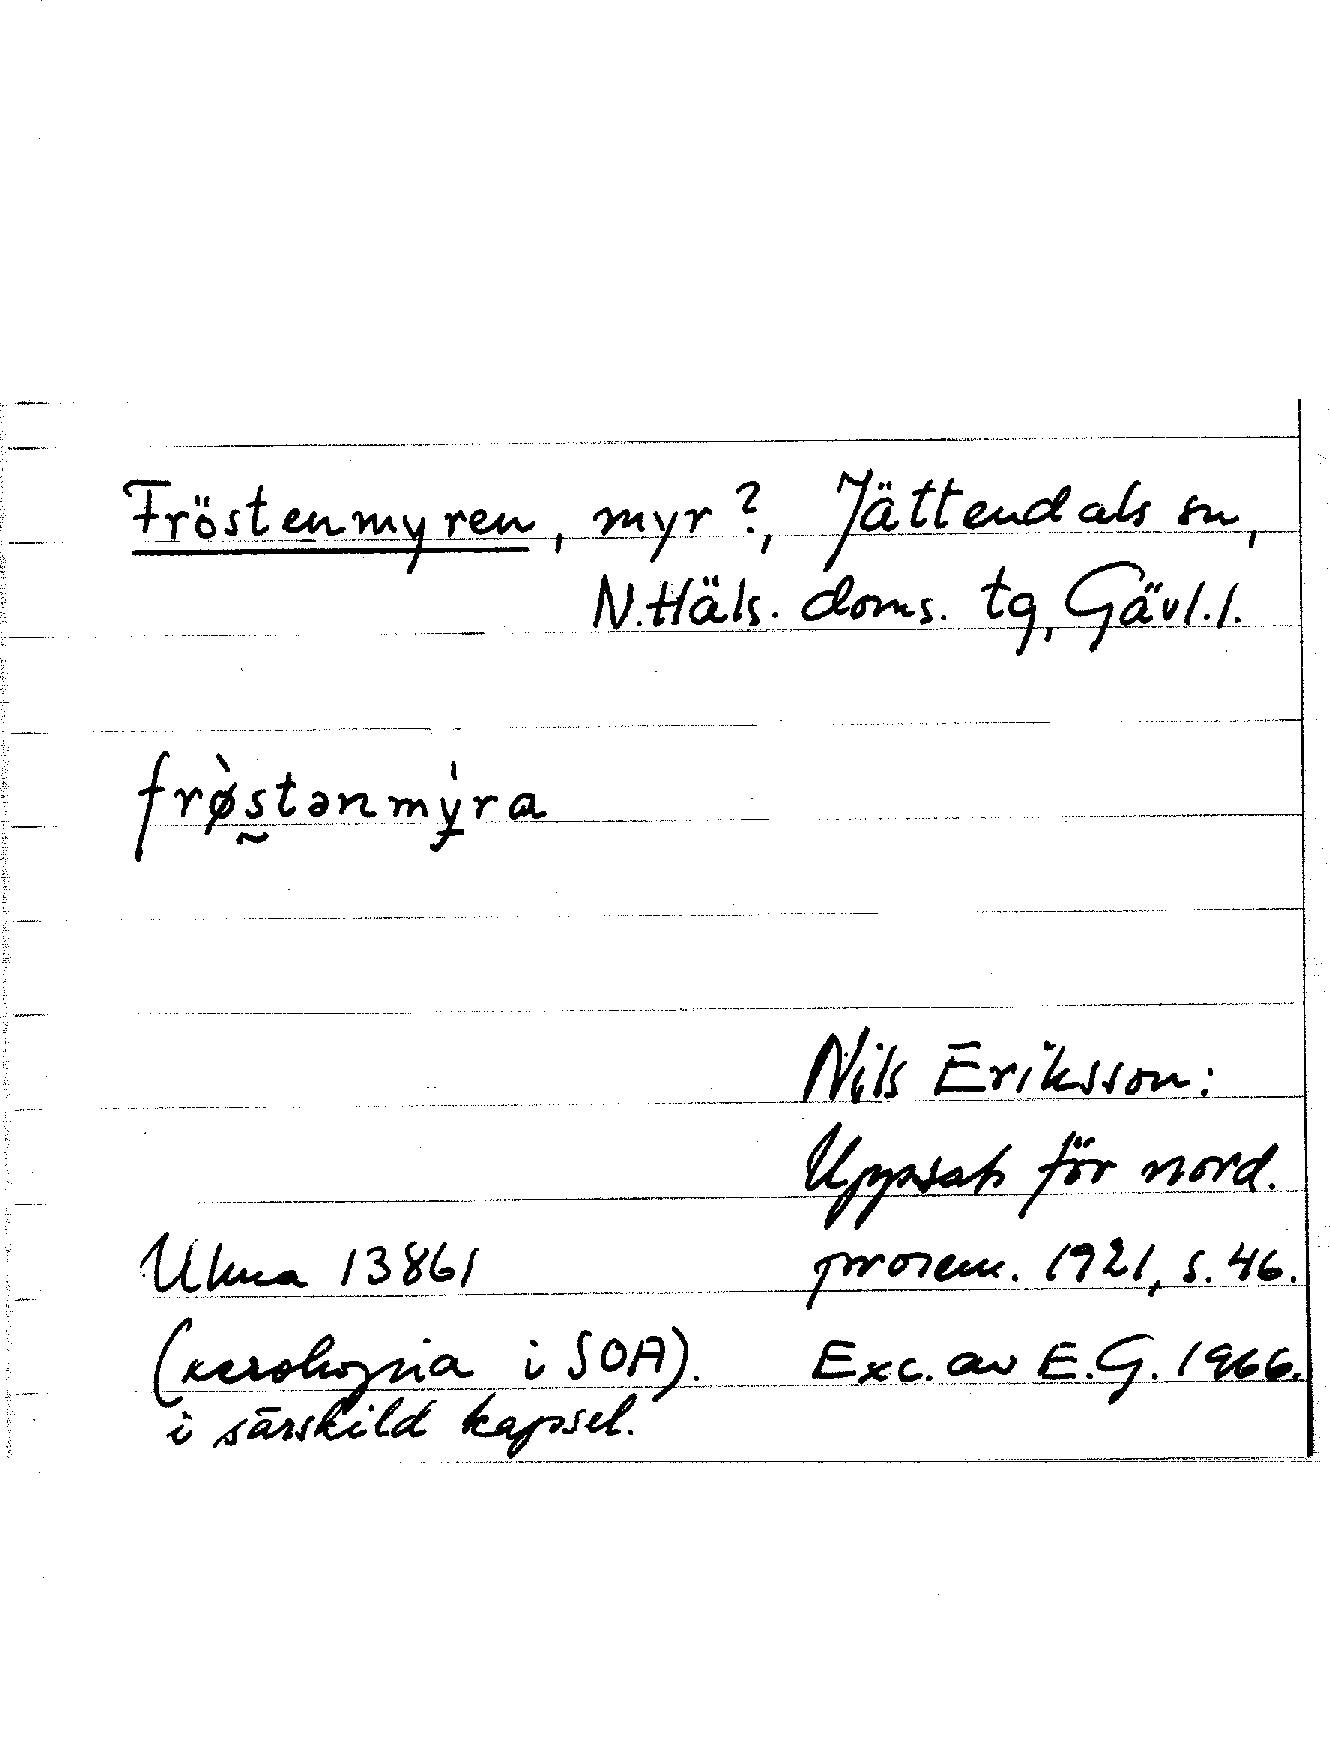 Fröstenmyren, myr?, Jättendals sn,
N.Häls. doms. tg, Gävl.l.
frø̀s̰tənmỳ̩ra
Nils Eriksson:
Uppsats för nord.
prosem. 1921, s. 46.
Exc. av E.G. 1966.
Ulma 13861
(xerokopia i SOA).
i särskild kapsel.